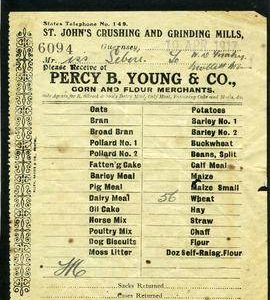 States Telephone No 149.
ST. JOHN'S CRUSHING AND GRINDING MILLS,
6094 Guernsey,
Mr.
Please Receive at
PERCY B. YOUNG & CO.,
CORN AND FLOUR MERCHANTS.
Oats Potatoes
Bran Barley No. 1
Broad Bran Barley No. 2
Pollard No. 1 Buckwheat
Pollard No. 2 Beans, Split
Fatten'g Cake Calf Meal
Barley Meal Maize
Pig Meal Maize Small
Dairy Meal 56 Wheat
Oil Cake Hay
Horse Mix Straw
Poultry Mix Chaff
Dog Biscuits Flour
Moss Litter Doz Self-Raisg. Flour
Sacks Returned
Cases Returned